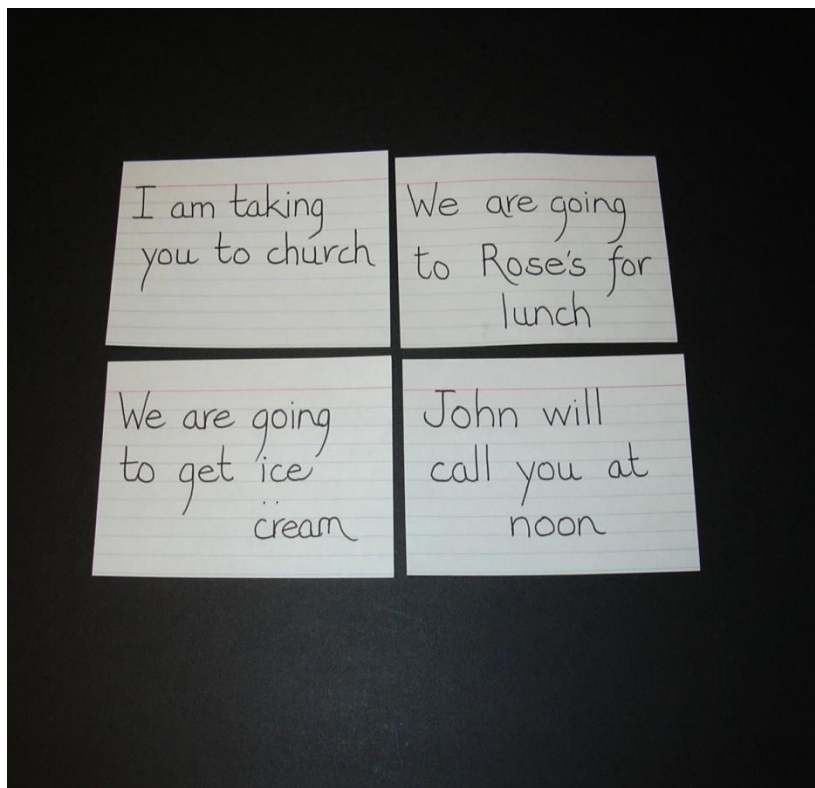 I am taking
you to church
We are going
to Rose's for
lunch
We are going
to get ice
cream
John will
call you at
noon